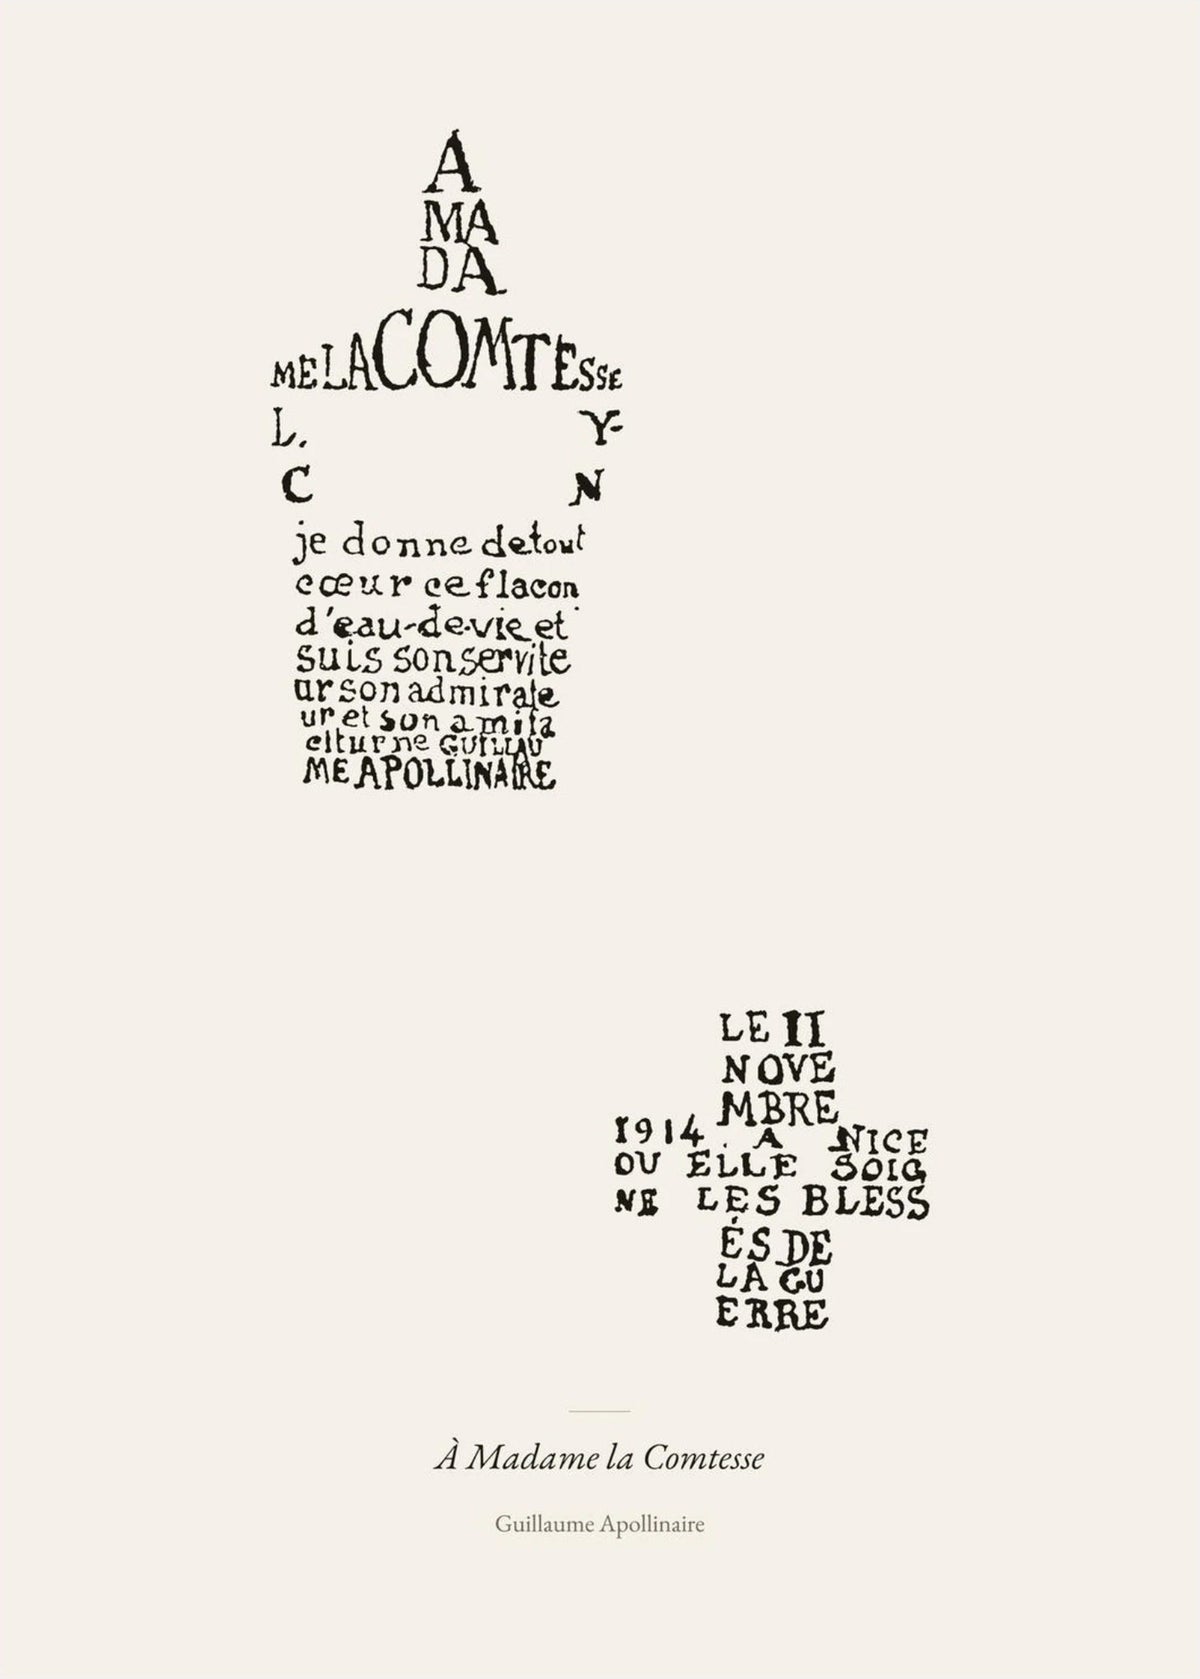 A
MA
DA
MELACOMTESSE
L. Y-
C N
je donne detout
cœur ce flacon
d'eau-de-vie et
suis son servite
ur son admirate
ur et son a mi ta
citurne GUILLAU
ME APOLLINAIRE
LE II
NOVE
MBRE
1914 . A NICE
OU ELLE SOIG
NE LES BLESS
ÉS DE
LA GU
ERRE
À Madame la Comtesse
Guillaume Apollinaire